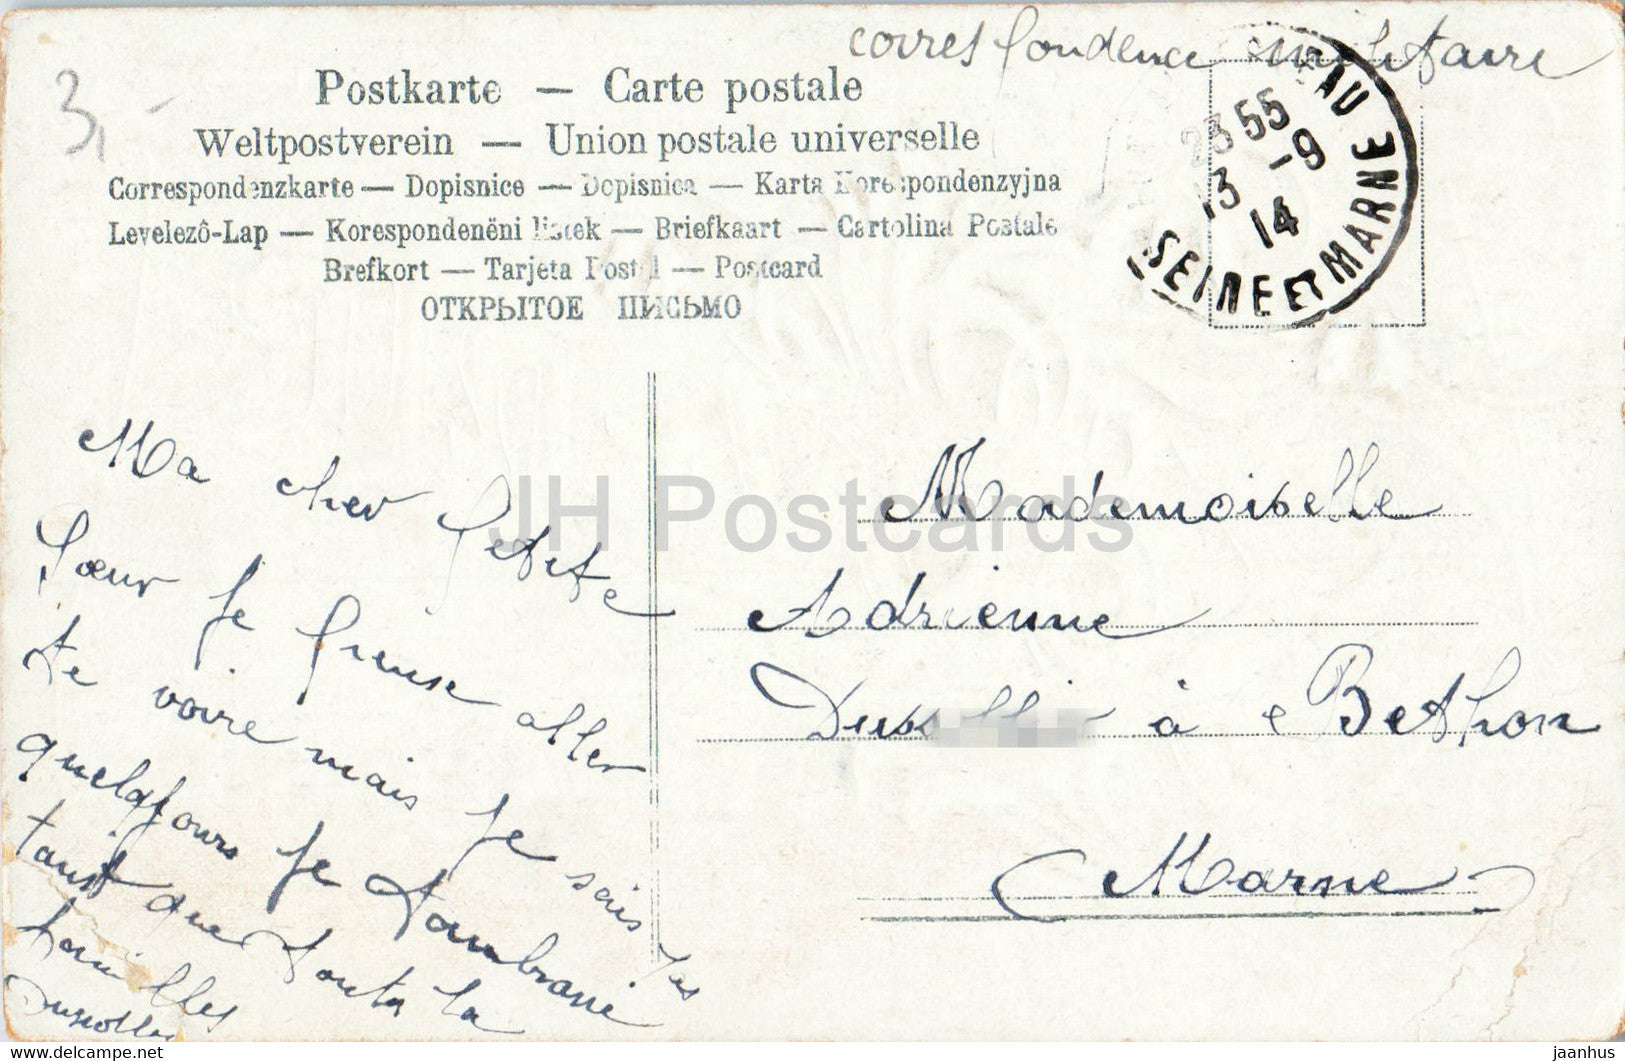 correspondence militaire
3,-
Postkarte — Carte postale
Weltpostverein — Union postale universelle
Correspondenzkarte — Dopisnice — Dopisnica — Karta Korespondenzyjna
Levelezô-Lap — Korespondenëni listek — Briefkaart — Cartolina Postale
Brefkort — Tarjeta Postal — Postcard
ОТКРЫТОЕ ПИСЬМО
EAU
23 55
13 -9
14
SEINE ET MARNE
Ma cher petite
sœur je pense aller
te voire mais je sais pas
quelqjours je t'embrasse
tant que toute la
familles
Mademoiselle
Adrienne
à Bethon
(Marne)
JH Postcards
delcampe.net
jaanhus